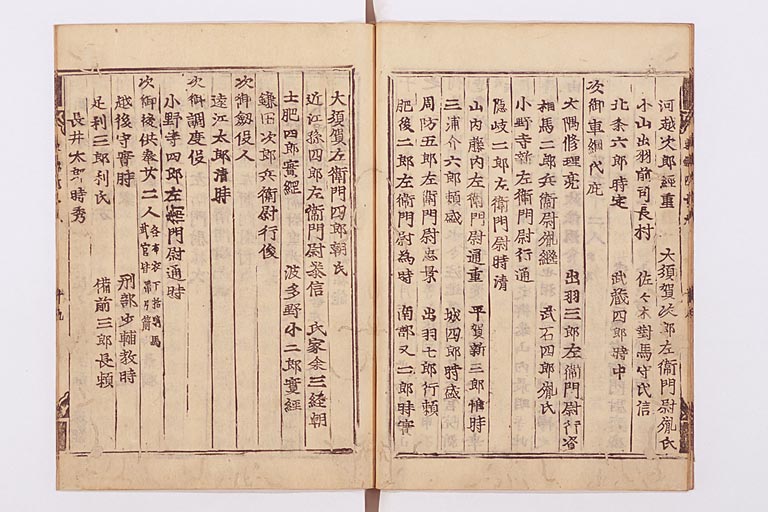 河越次郎経重　大須賀次郎左衛門尉胤氏
小山出羽前司長村　佐々木對馬守氏信
北条六郎時定　武蔵四郎時中
次御車網代庇
大隅修理亮　出羽三郎左衛門尉行資
相馬二郎兵衛尉胤継　武石四郎胤氏
小野寺新左衛門尉行通
隠岐二郎左衛門尉時清
山内藤内左衛門尉通重　平賀新三郎惟時
三浦介六郎頼盛　城四郎時盛
周防五郎左衛門尉忠景　出羽七郎行頼
肥後二郎左衛門尉為時　南部又二郎時實
大須賀左衛門四郎朝氏
近江孫四郎左衛門尉泰信　氏家余三経朝
土肥四郎實綱　波多野小二郎實経
鎌田次郎兵衛尉行俊
次御劔役人
遠江太郎清時
次御調度役
小野寺四郎左衛門尉通時
次御後供奉廿二人各布衣下括騎馬武官皆帯弓箭
越後守實時　刑部少輔教時
足利三郎利氏　備前三郎長頼
長井太郎時秀